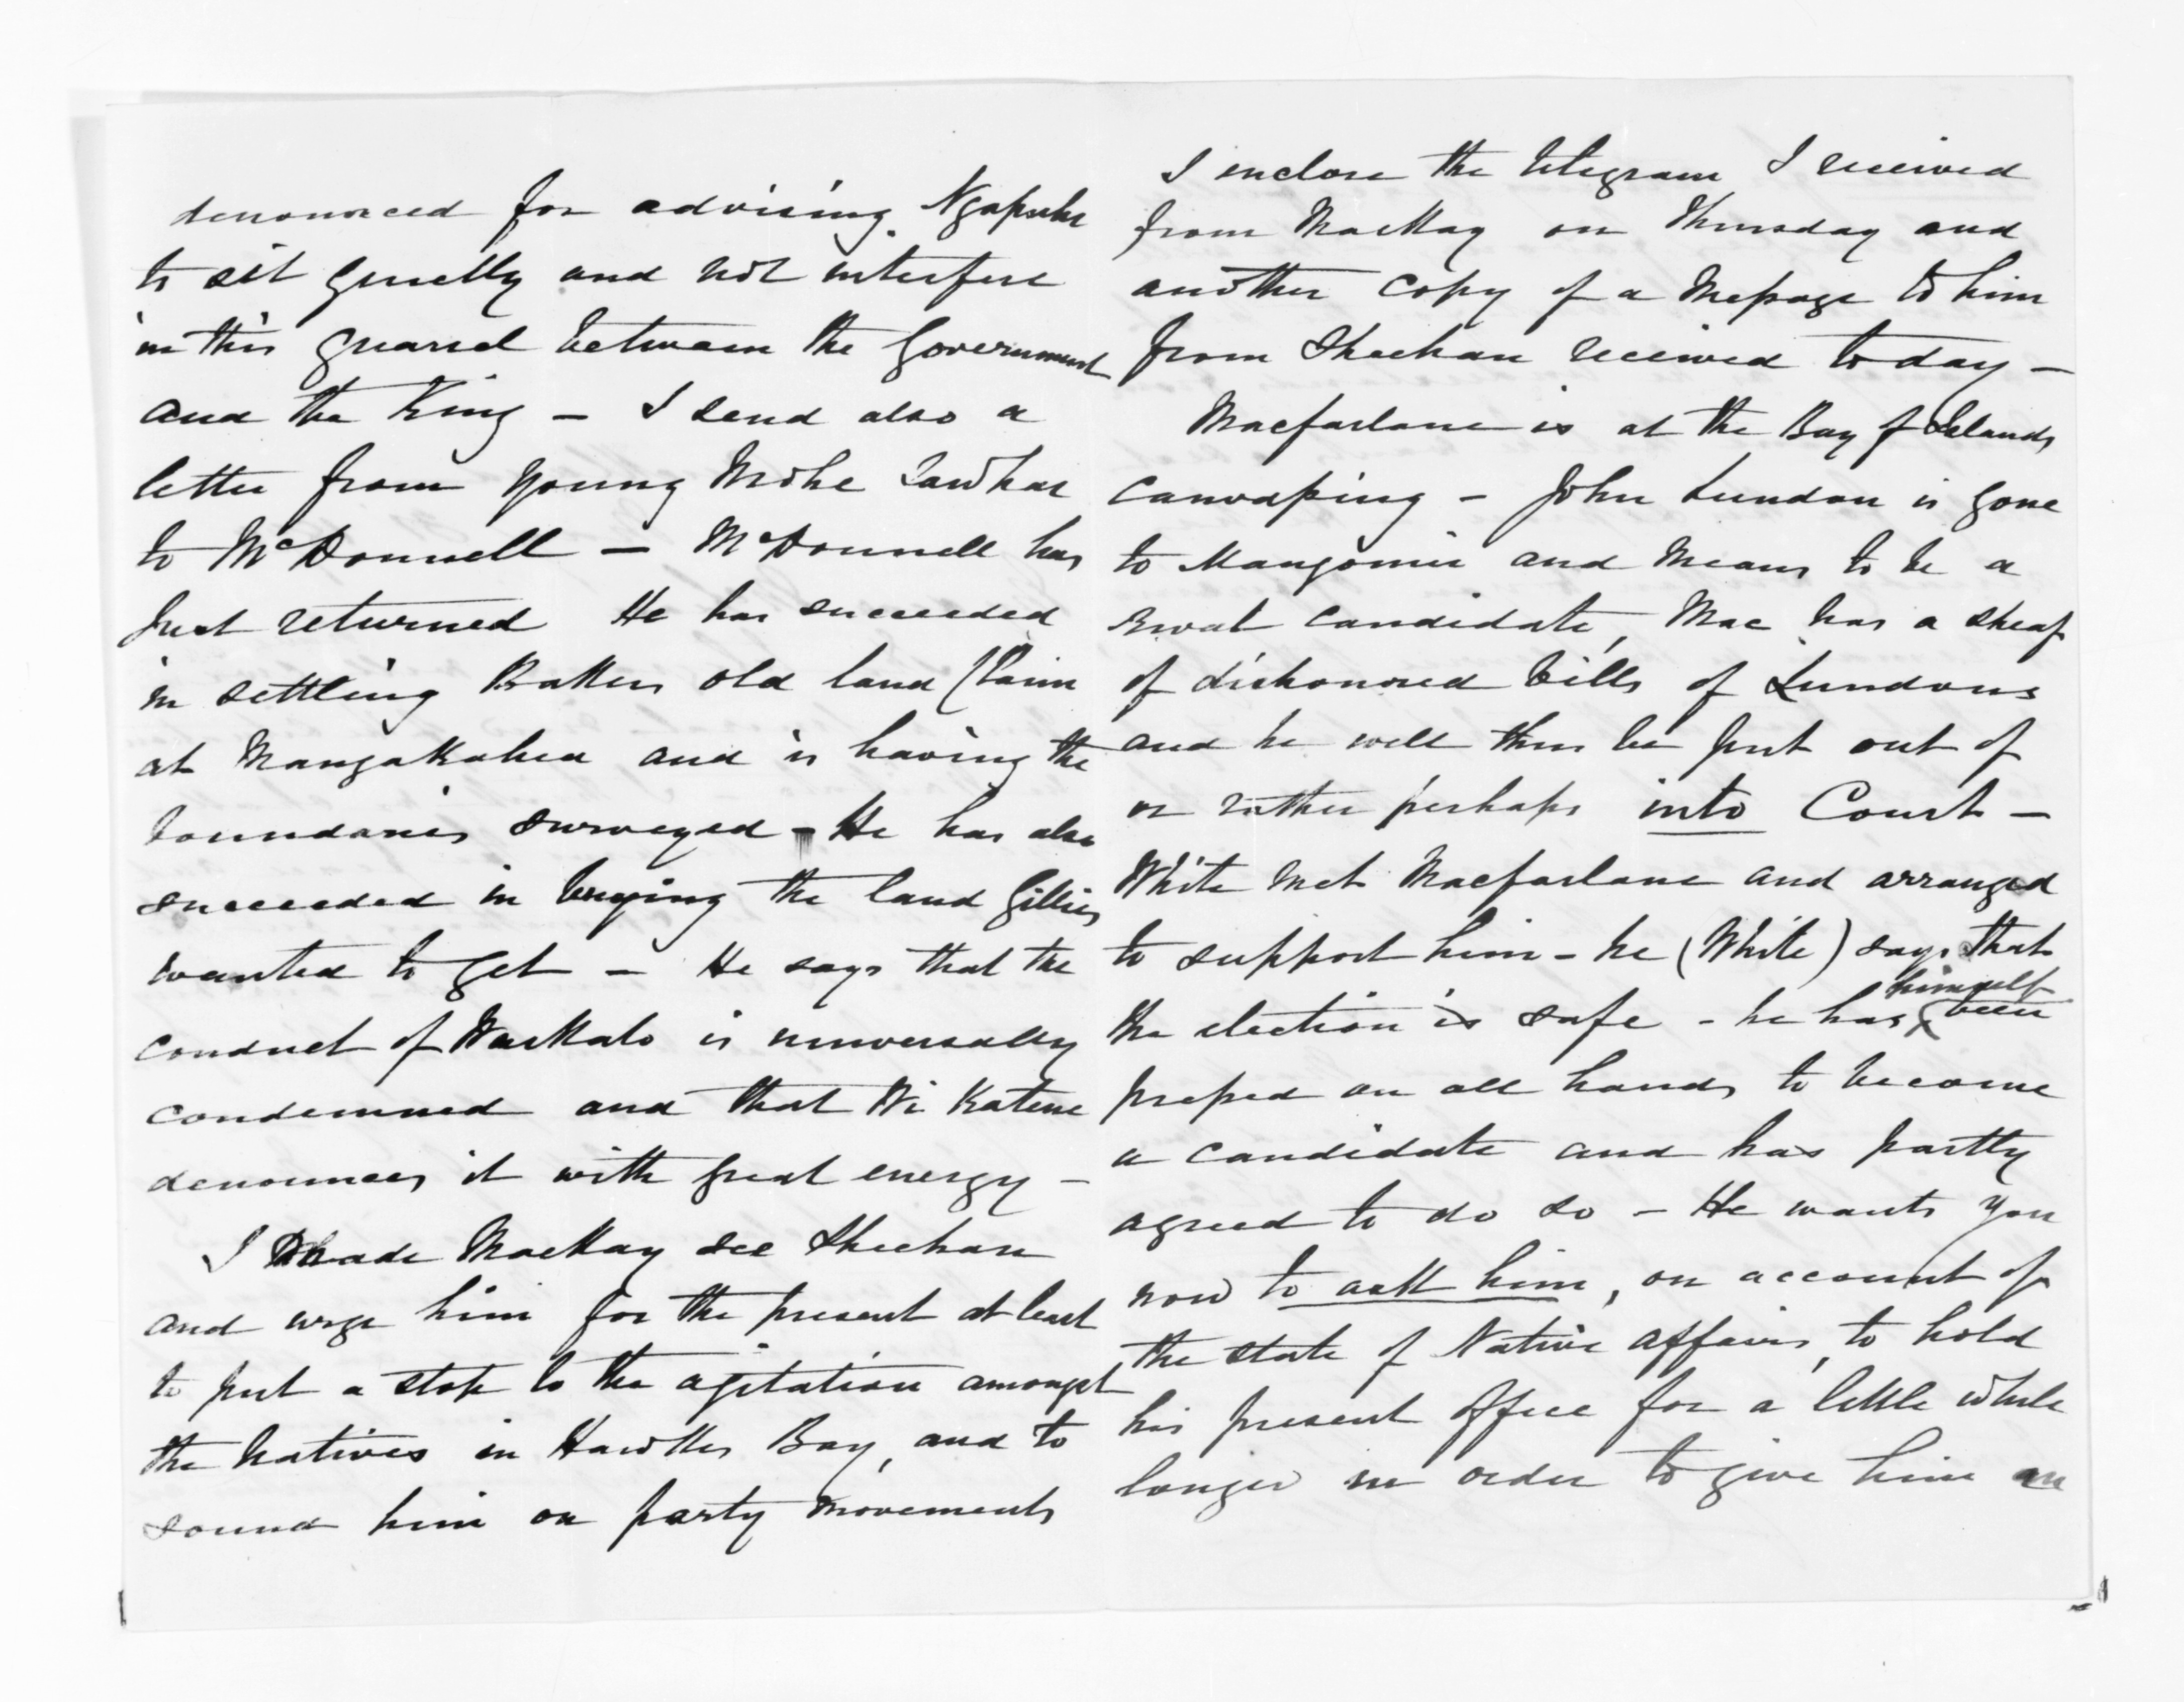 denounced for advising Ngapuhi
to sit quietly and not interfere
in this quarrel between the Government
and the King – I send also a
letter from young Mohe Tawhai
to McDonnell – McDonnell has
just returned He has succeeded
in settling Bakers old land Claim
at Mangakahia and is having the
boundaries surveyed – He has also
succeeded in buying the land Gillies
wanted to get – He says that the
conduct of Waikato is universally
condemned and that Wi Katene
denounces it with great energy –
I made MacKay see Sheehan
and urge him for the present at least
to put a stop to the agitation amongst
the Natives in Hawkes Bay, and to
sound him on party movements
I enclose the telegram I received
from MacKay on Thursday and
another copy of a Message to him
from Sheehan received today –
Macfarlane is at the Bay of Islands
canvassing – John Lundon is gone
to Mangonui and means to be a
rival candidate, Mac has a sheaf
of dishonored bills of Lundons
and he will thus be put out of
or rather perhaps into Court –
White met Macfarlane and arranged
to support him – he (White) says that
the election is safe – he has himself been
pressed on all hands to become
a candidate and has partly
agreed to do so – He wants you
now to ask him, on account of
the state of Native affairs, to hold
his present office for a little while
longer in order to give him an